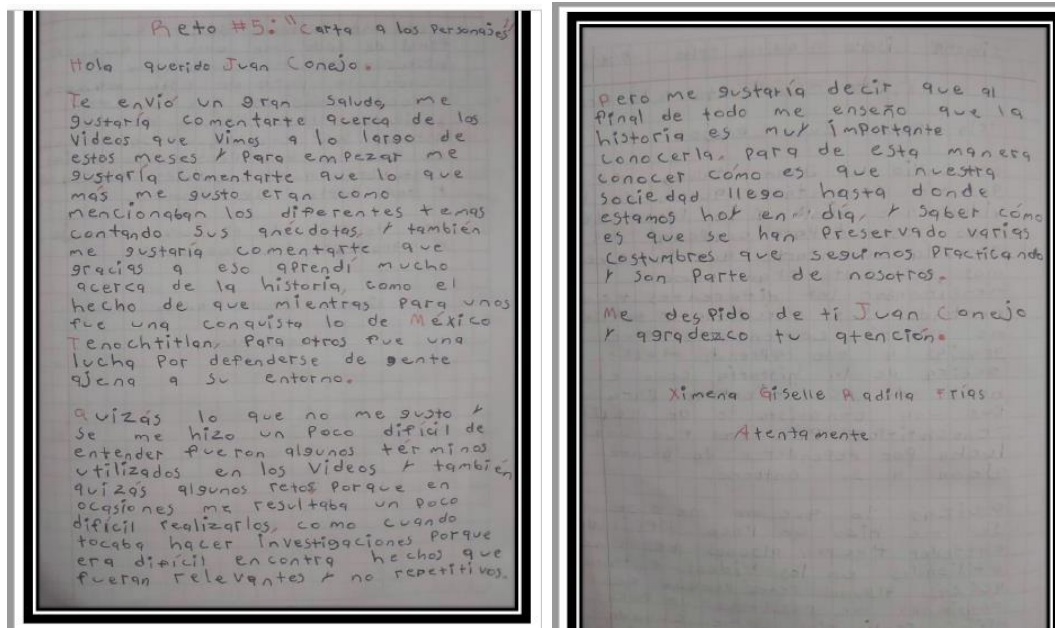 Reto #5: "Carta a los Personajes"
Hola querido Juan Conejo.
Te envió un gran saludo, me
gustaría comentarte acerca de los
videos que vimos a lo largo de
estos meses y Para empezar me
gustaría comentarte que lo que
más me gusto eran como
mencionaban los diferentes temas
contando sus anécdotas, y también
me gustaría comentarte que
gracias a eso aprendí mucho
acerca de la historia, como el
hecho de que mientras Para unos
fue una conquista lo de México
Tenochtitlan, Para otros fue una
lucha Por defenderse de gente
ajena a su entorno.
Quizás lo que no me gusto y
se me hizo un Poco difícil de
entender fueron algunos términos
utilizados en los Videos y también
quizás algunos retos Porque en
ocasiones me resultaba un Poco
difícil realizarlos, como cuando
tocaba hacer investigaciones Porque
era difícil encontra hechos que
fueran relevantes y no repetitivos.
Pero me gustaría decir que al
final de todo me enseño que la
historia es muy importante
conocerla, Para de esta manera
conocer cómo es que nuestra
sociedad llego hasta donde
estamos hoy en día, y saber cómo
es que se han Preservado varias
costumbres que seguimos Practicando
y son Parte de nosotros.
Me despido de ti Juan Conejo
y agradezco tu atención.
Ximena Giselle Radilla Frías
Atentamente